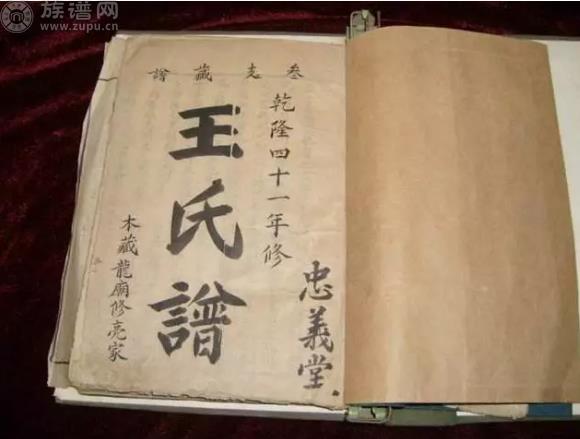 族谱网
www.zupu.cn
叁支藏譜
乾隆四十一年修
忠義堂
王氏譜
木藏龍廟修亮家